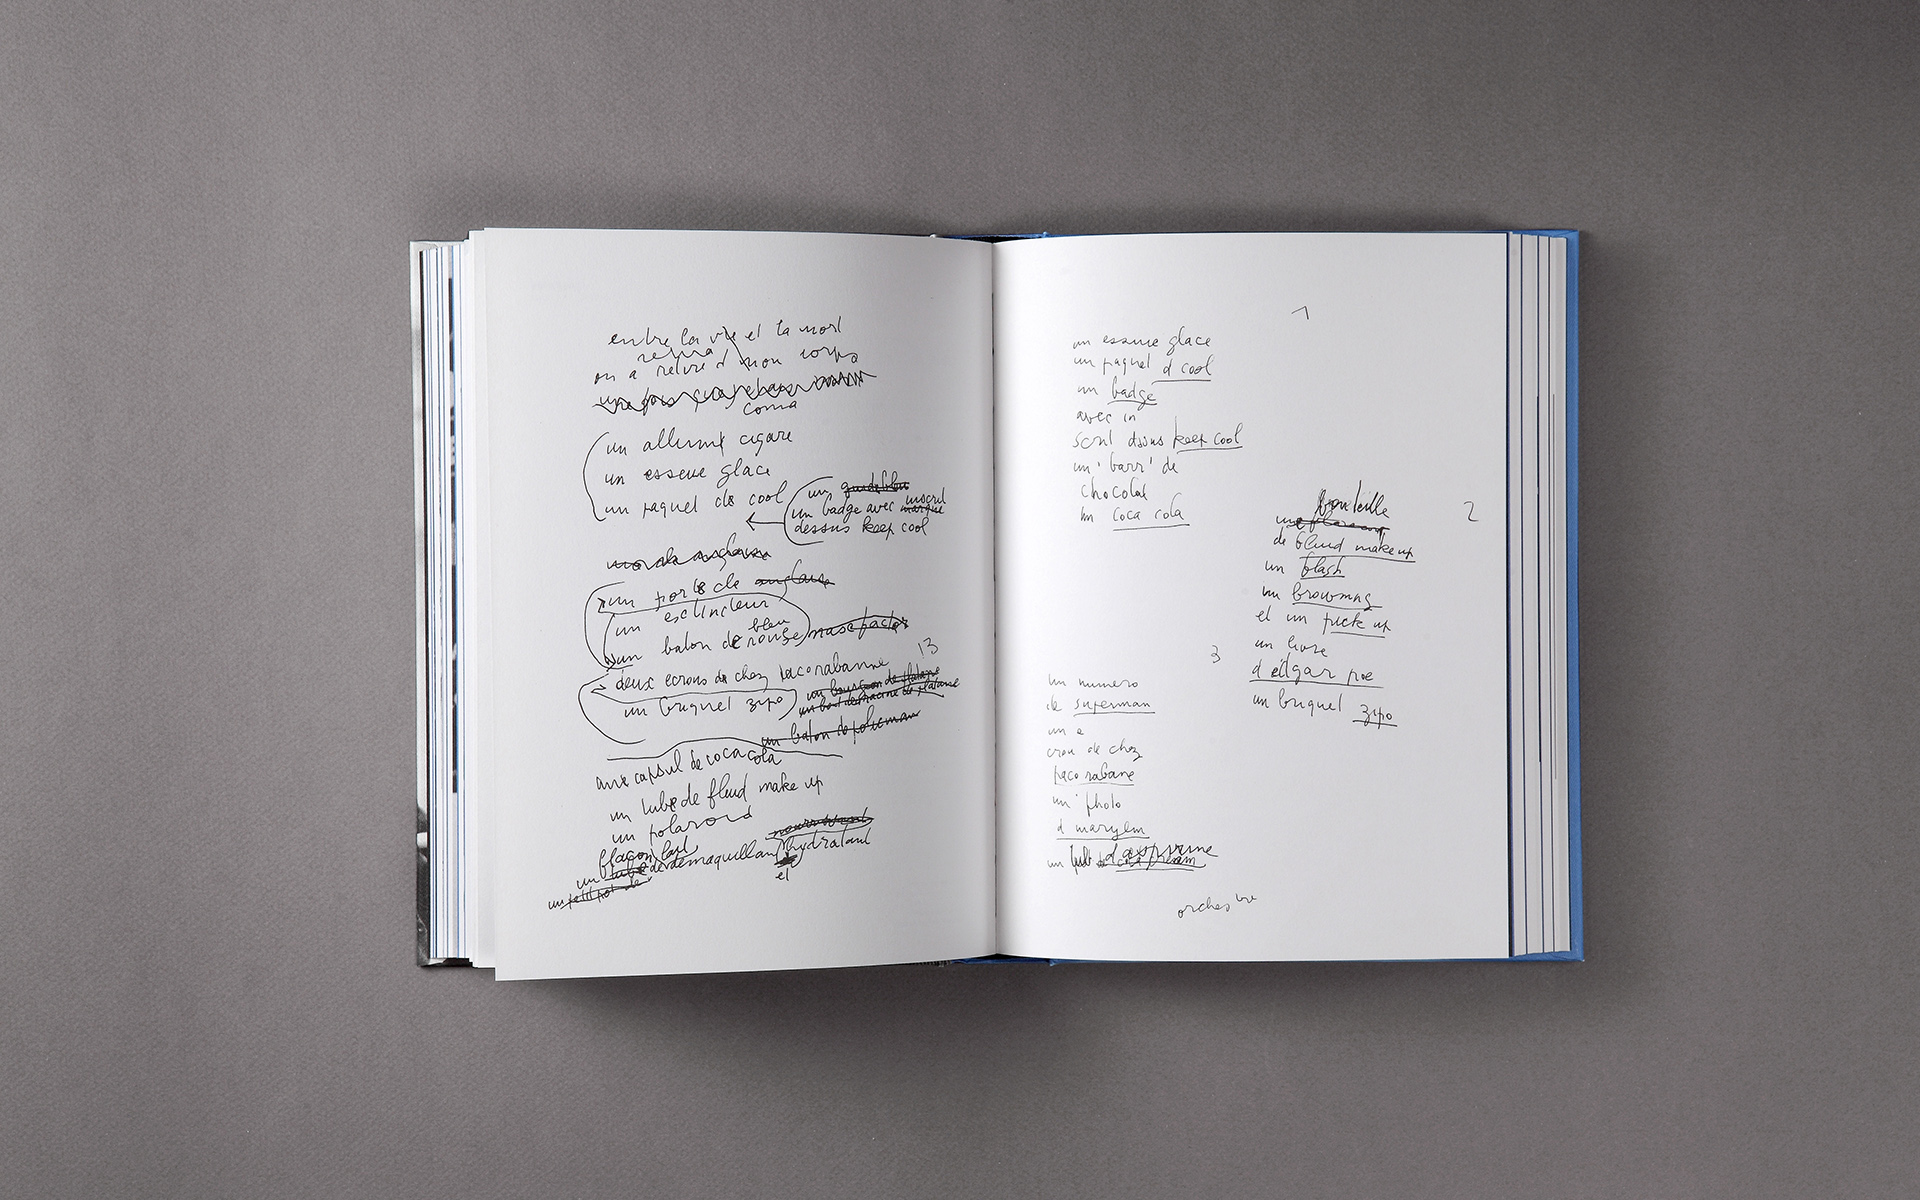 entre la vie et la mort
on a relevé mon corps
coma
un allume cigare
un essuie glace
un paquet de cool
un
inscrit
un badge avec
dessus keep cool
un porte cle
un extincteur
bleu
un balon de rouge
13
deux ecrous de chez paco rabanne
un briquet zipo
un balon de policman
une capsul de coca cola
un tube de fluid make up
un polaroid
flacon lait
un de demaquillant hydratant
et
un petit pot de
1
un essuie glace
un paquet d cool
un badge
avec in
scrit dssus keep cool
un 'barr' de
chocolat
un coca cola
bouteille
2
une
de fluid make up
un flash
un browning
et un pick up
un livre
d edgar poe
un briquet zipo
3
un numero
de superman
un e
crou de chez
paco rabane
un' photo
d marylin
un tub d aspirine
orchestre